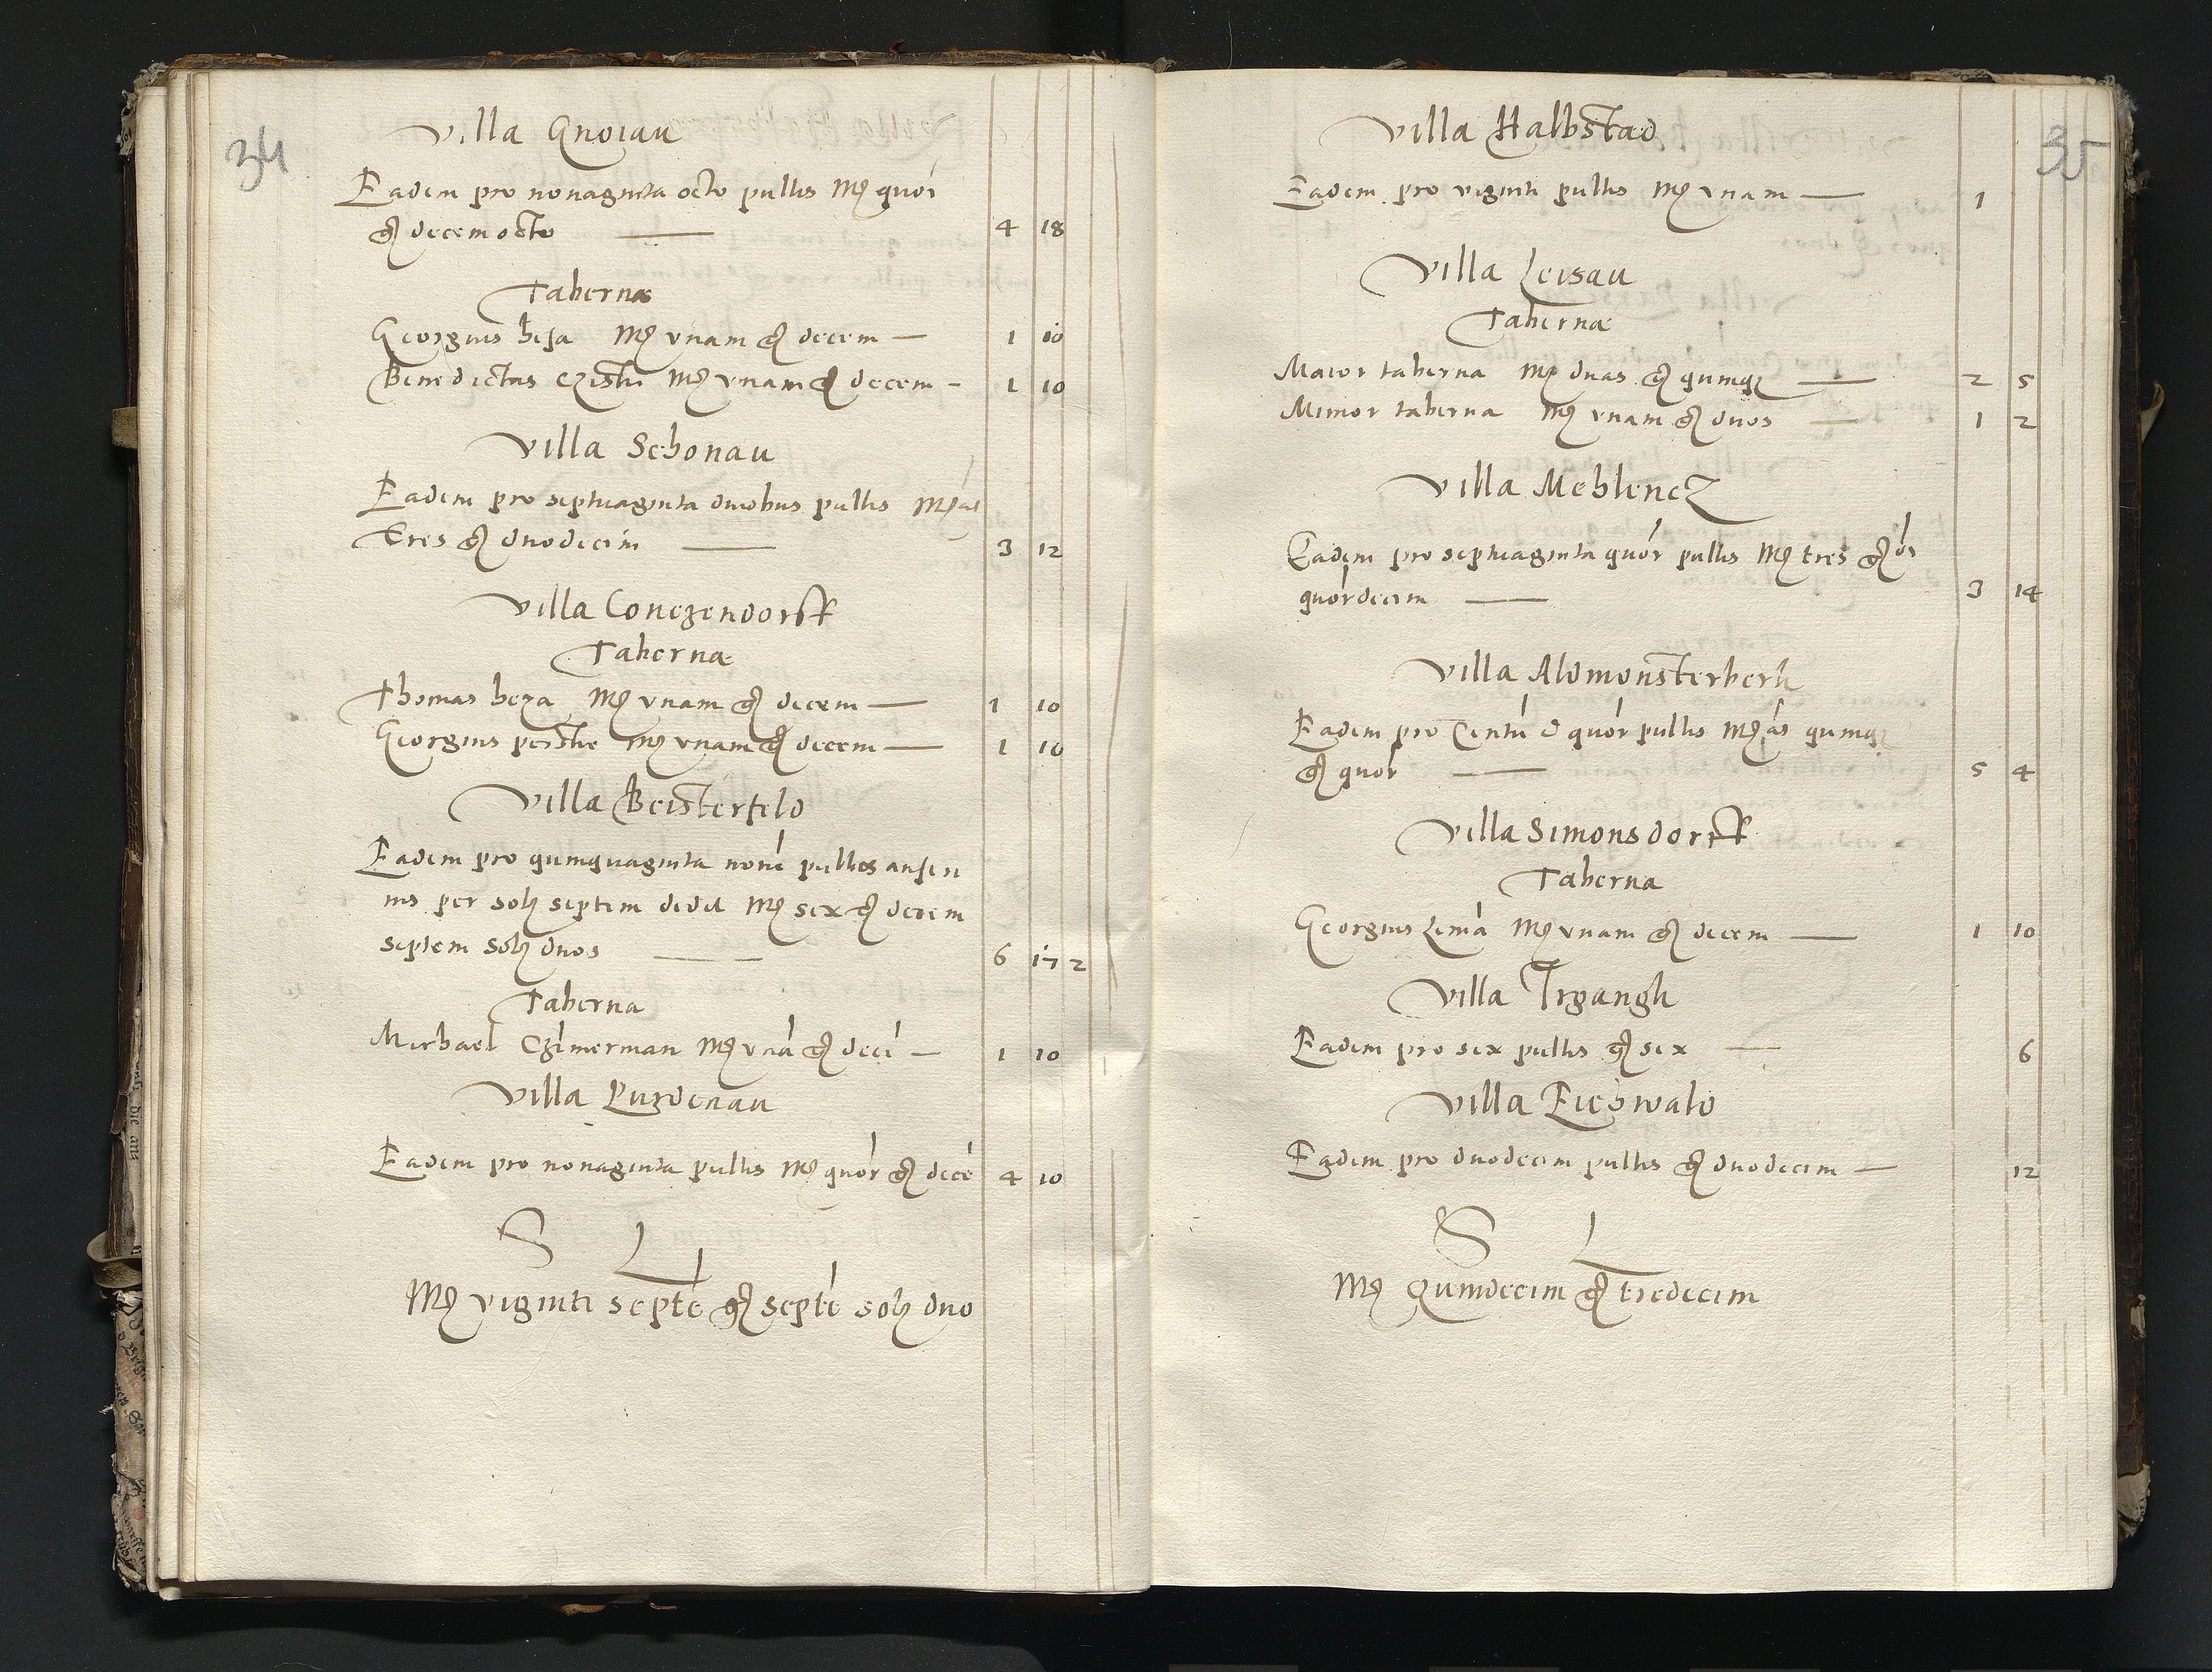 34
Villa Gnoiau
Eadem pro nonaginta octo pullis Mꝶ quor
gꝶ decem octo — 4 18
Tabernæ
Georgius hesa Mꝶ vnam gꝶ decem — 1 10
Benedictus Czisthi Mꝶ vnam gꝶ decem — 1 10
Villa Schonau
Eadem pro septuaginta duobus pullis Mꝶas
Tres gꝶ duodecim — 3 12
Villa Conczendorff
Tabernæ
Thomas heza Mꝶ vnam gꝶ decem — 1 10
Georgius persthe Mꝶ vnam gꝶ decem — 1 10
Villa Beisterfeld
Eadem pro quinquaginta nouē pullos anseri
nis per solꝫ septem dedit Mꝶ sex gꝶ decem
septem solꝫ duos — 6 17 2
Taberna
Michael Czimerman Mꝶ vnā gꝶ decē — 1 10
Villa Luzdenau
Eadem pro nonaginta pullis Mꝶ quor gꝶ decē 4 10
S L
Mꝶ viginti septē gꝶ septē solꝫ duo
35
Villa Halbstad
Eadem pro viginti pullis Mꝶ vnam — 1
Villa Leisau
Tabernæ
Maior taberna Mꝶ duas gꝶ quinqꝫ — 2 5
Minor taberna Mꝶ vnam gꝶ duos — 1 2
Villa Mehlencz
Eadem pro septuaginta quor pullis Mꝶ tres gꝶ os
quordecim — 3 14
Villa Aldmonsterberk
Eadem pro Centū & quor pullis Mꝶas quinqꝫ
gꝶ quor — 5 4
Villa Simonsdorff
Taberna
Georgius Lema Mꝶ vnam gꝶ decem — 1 10
Villa Irgangk
Eadem pro sex pullis gꝶ sex — 6
Villa Eieswald
Eadem pro duodecim pullis gꝶ duodecim — 12
S L
Mꝶ Quindecim gꝶ tredecim